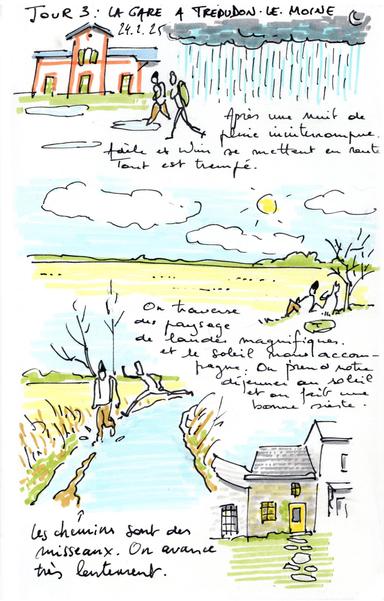 JOUR 3 : LA GARE A TREDUDON-LE-MOINE
24.2.25
Après une nuit de
pluie ininterrompue.
et Wim se mettent en route
Tout est trempé.
On traverse
des paysage
de landes magnifiques.
et le soleil nous accom-
pagne. On prend notre
déjeuner au soleil
et on fait une
bonne sieste.
Les chemins sont des
ruisseaux. On avance
très lentement.